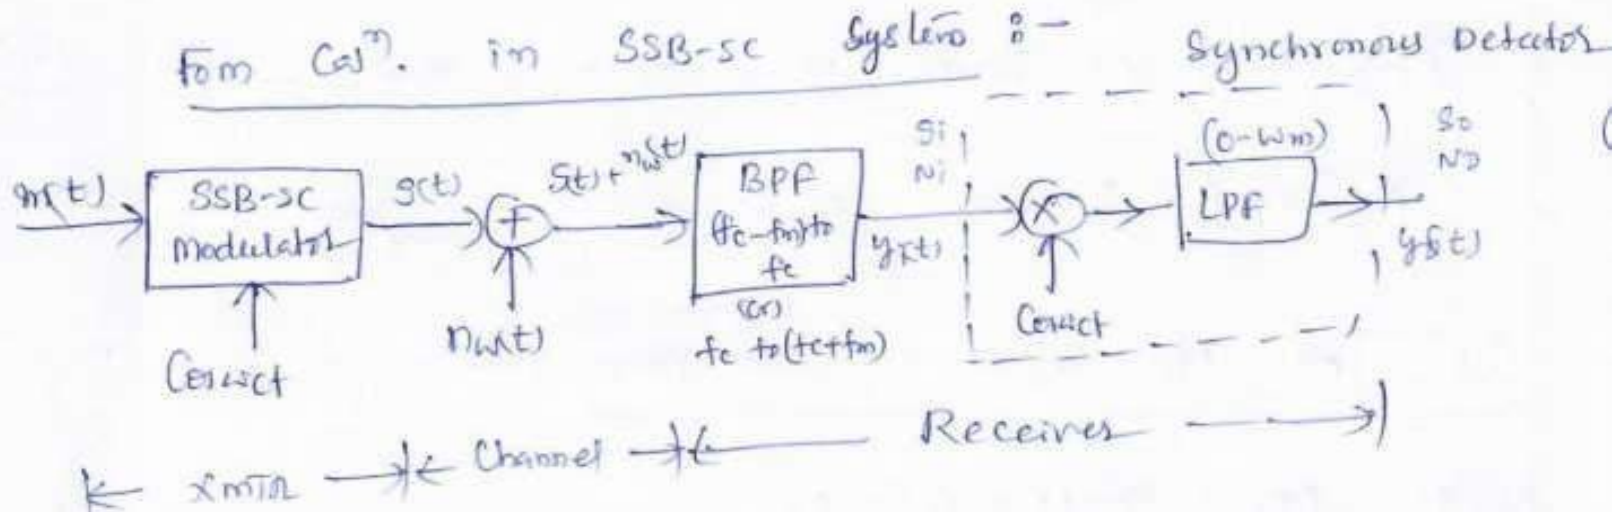 Fom Calⁿ. in SSB-SC System :-
Synchronous Detector
m(t)
SSB-SC
modulator
s(t)
+
s(t)+nw(t)
BPF
(fc-fm) to
fc
(or)
fc to (fc+fm)
Si
Ni
yi(t)
×
(0-wm)
LPF
So
No
yo(t)
(
Coswct
nw(t)
Coswct
Xmtr
Channel
Receiver